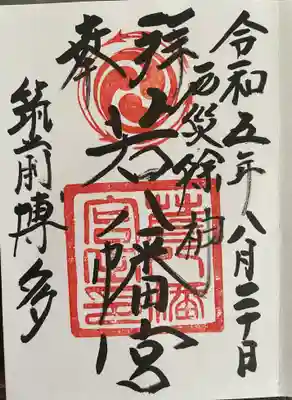 令和五年八月二十日
災除
奉拝
若八幡宮
筑前博多